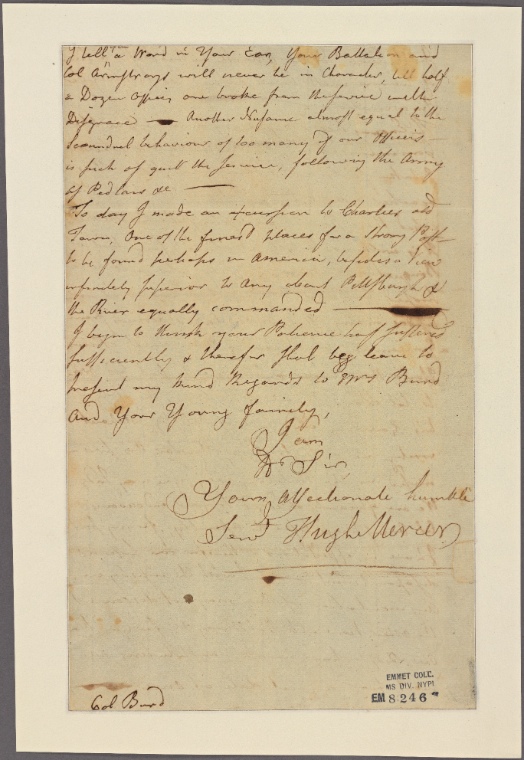 I tell m a Word in Your Ear, Your Battalion and
Col Armstrongs will never be in Character, till half
a Dozen Officers are broke from the Service with
Disgrace — Another Nusance almost equal to the
Scoundrel behaviour of too many of our Officers
is such of quit the Service, following the Army
as Pedlars &c —
To day I made an excursion to Chartiers old
Town, One of the finest places for a strong Post
to be found perhaps in America, besides a View
infinitely Superior to any about Pittsburgh &
the River equally commanded —
I begin to think your Patience has Suffered
sufficiently & therefor shall beg leave to
present my kind Regards to Mrs Burd
and Your Young family,
I am
Dr Sir,
Yours Affectionate humble
Servt Hugh Mercer
Col Burd
EMMET COLL.
MS DIV. NYPL
EM 8246